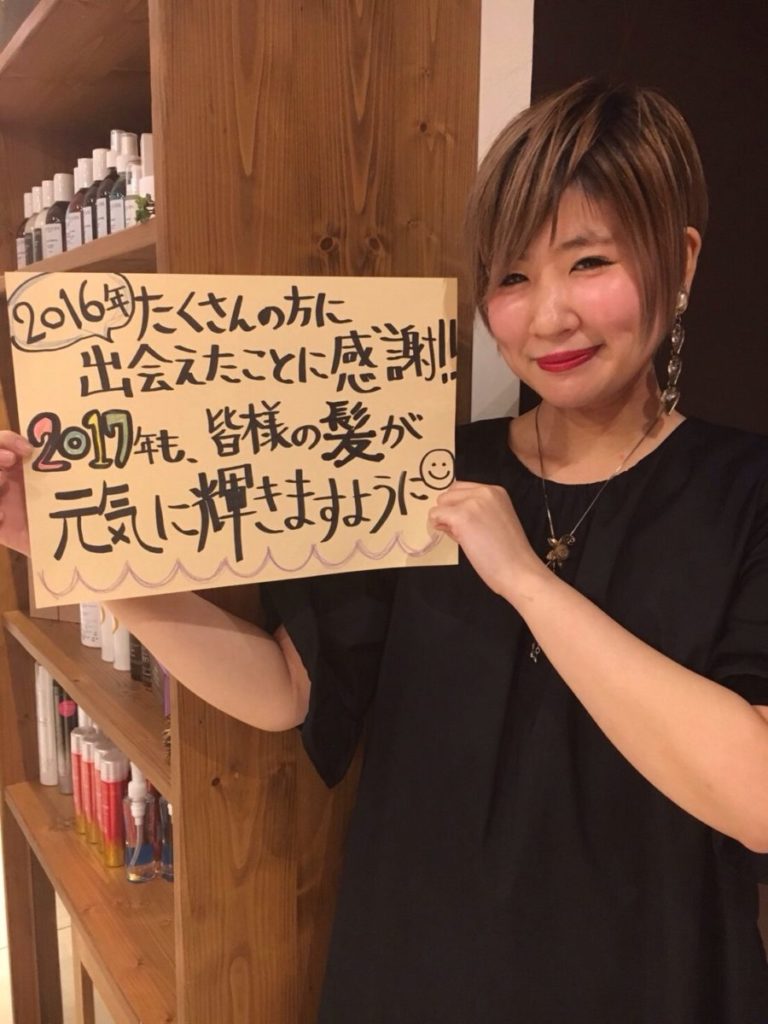 2016年たくさんの方に
出会えたことに感謝!!
2017年も、皆様の髪が
元気に輝きますように